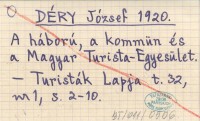 DÉRY József 1920.
A háború, a kommün és
a Magyar Turista-Egyesület.
– Turisták Lapja t. 32,
nº1, s. 2-10.